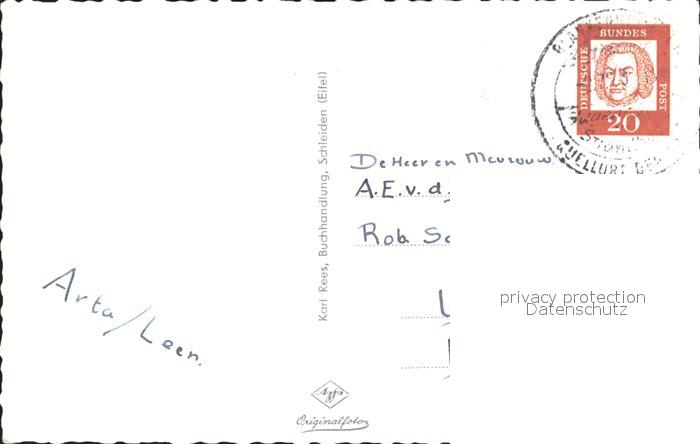 DEUTSCHE
BUNDES
POST
20
Karl Rees, Buchhandlung, Schleiden (Eifel)
De Heer en Mevrouw
A.E.v.d.
Rob. Sc
Arta/Leen.
privacy protection
Datenschutz
Agfa
Originalfoto